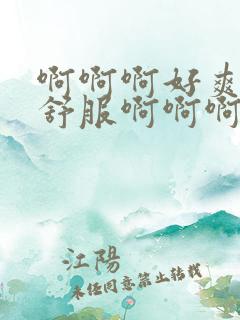 啊啊啊好爽
舒服啊啊啊
江陽
未经同意禁止转载